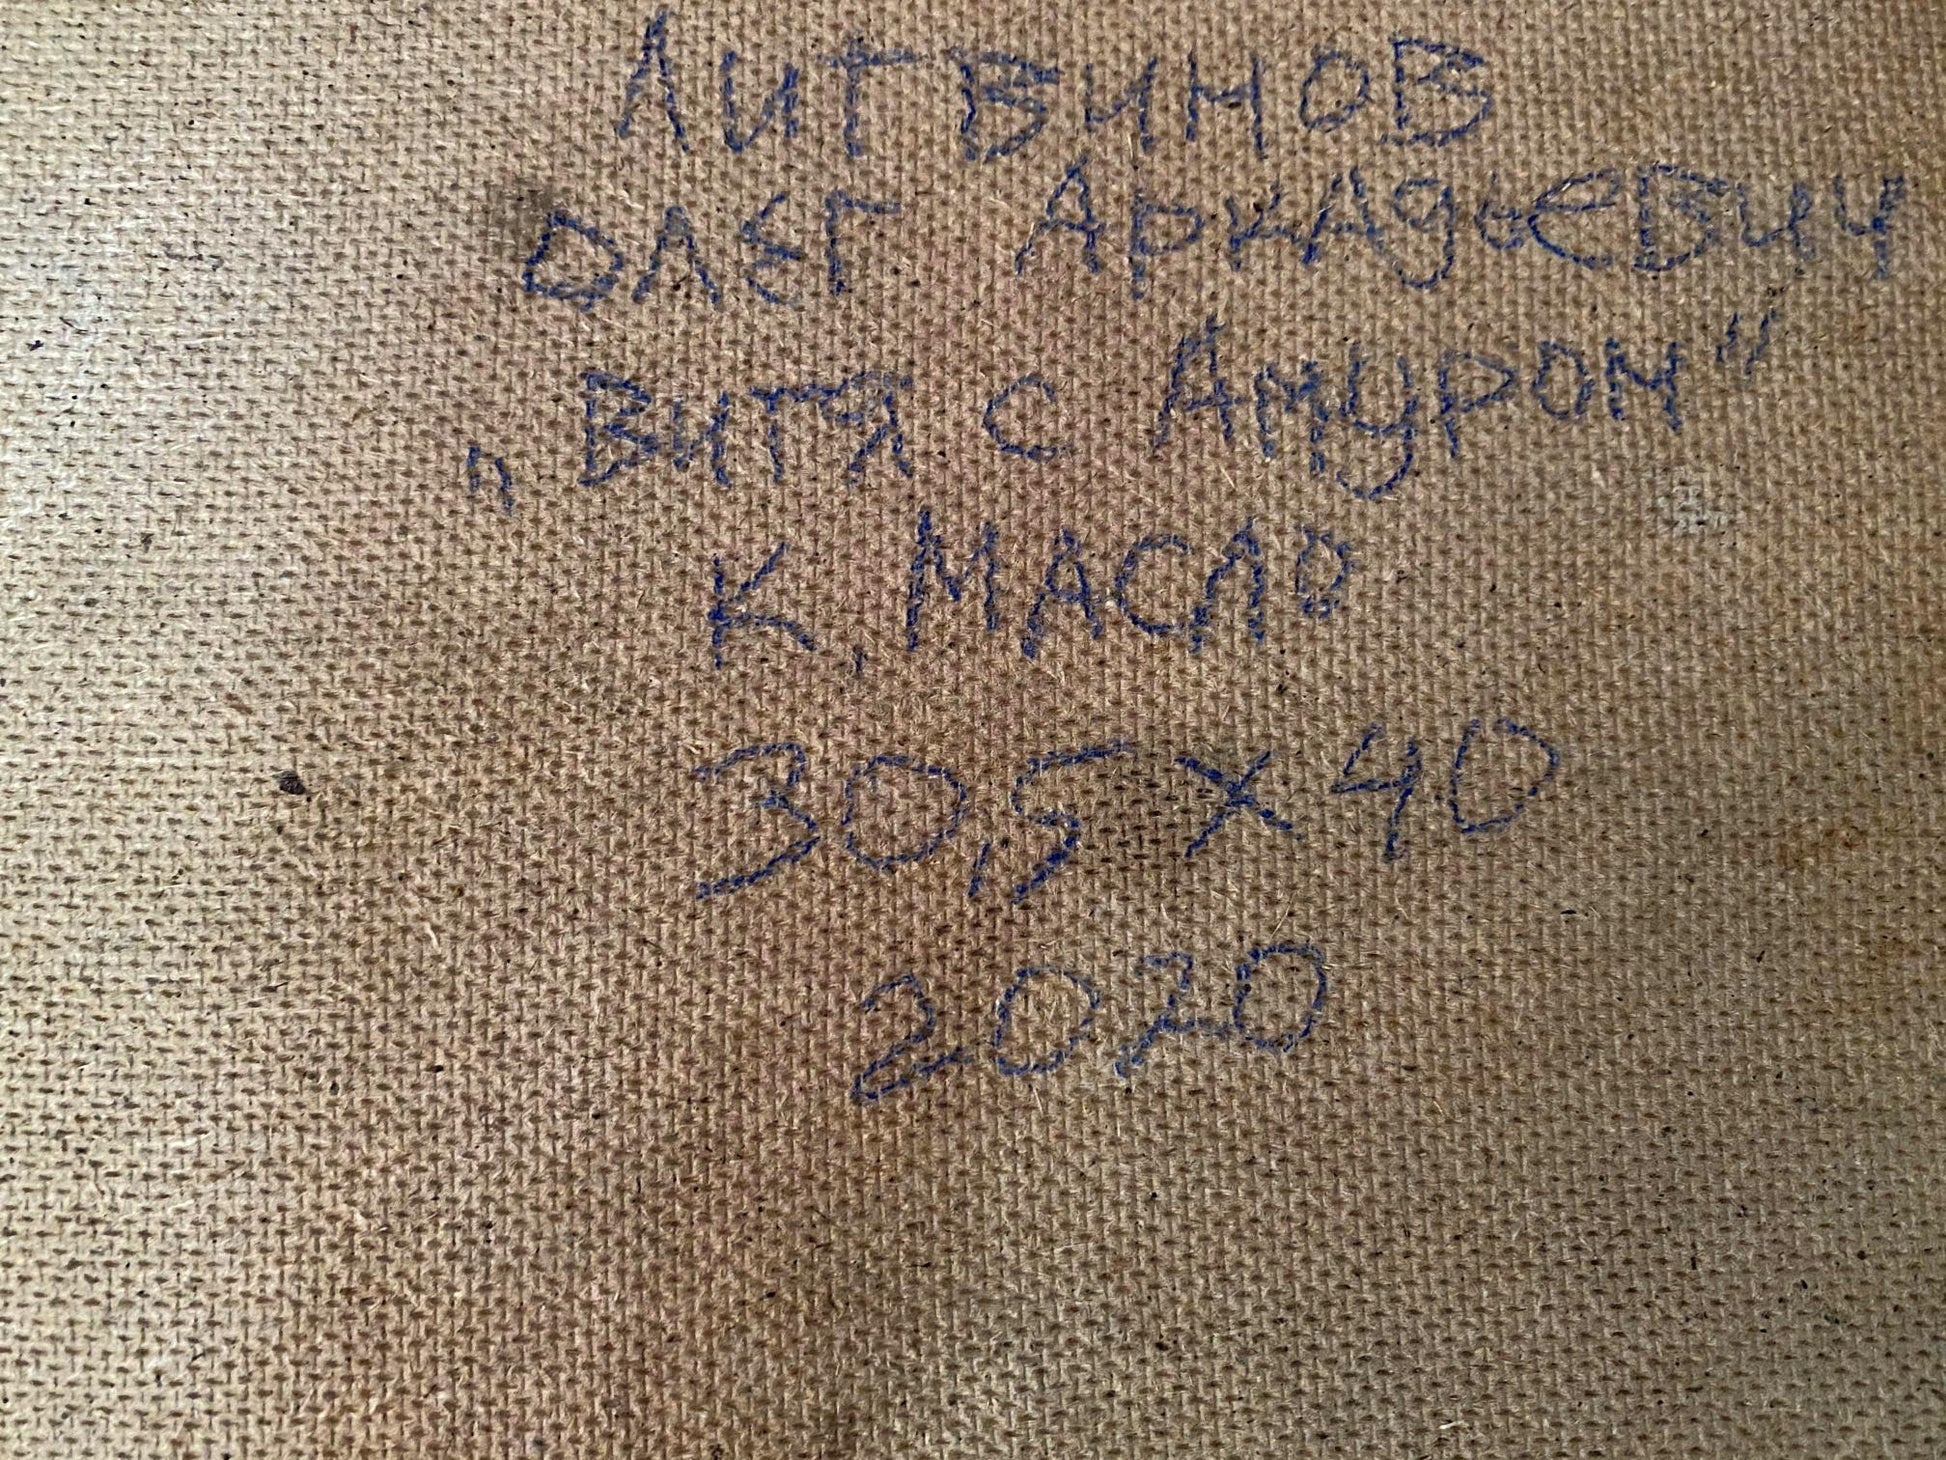 Литвинов
Олег Аркадьевич
„Витя с Амуром"
К, Масло
30,5 х 40
2020